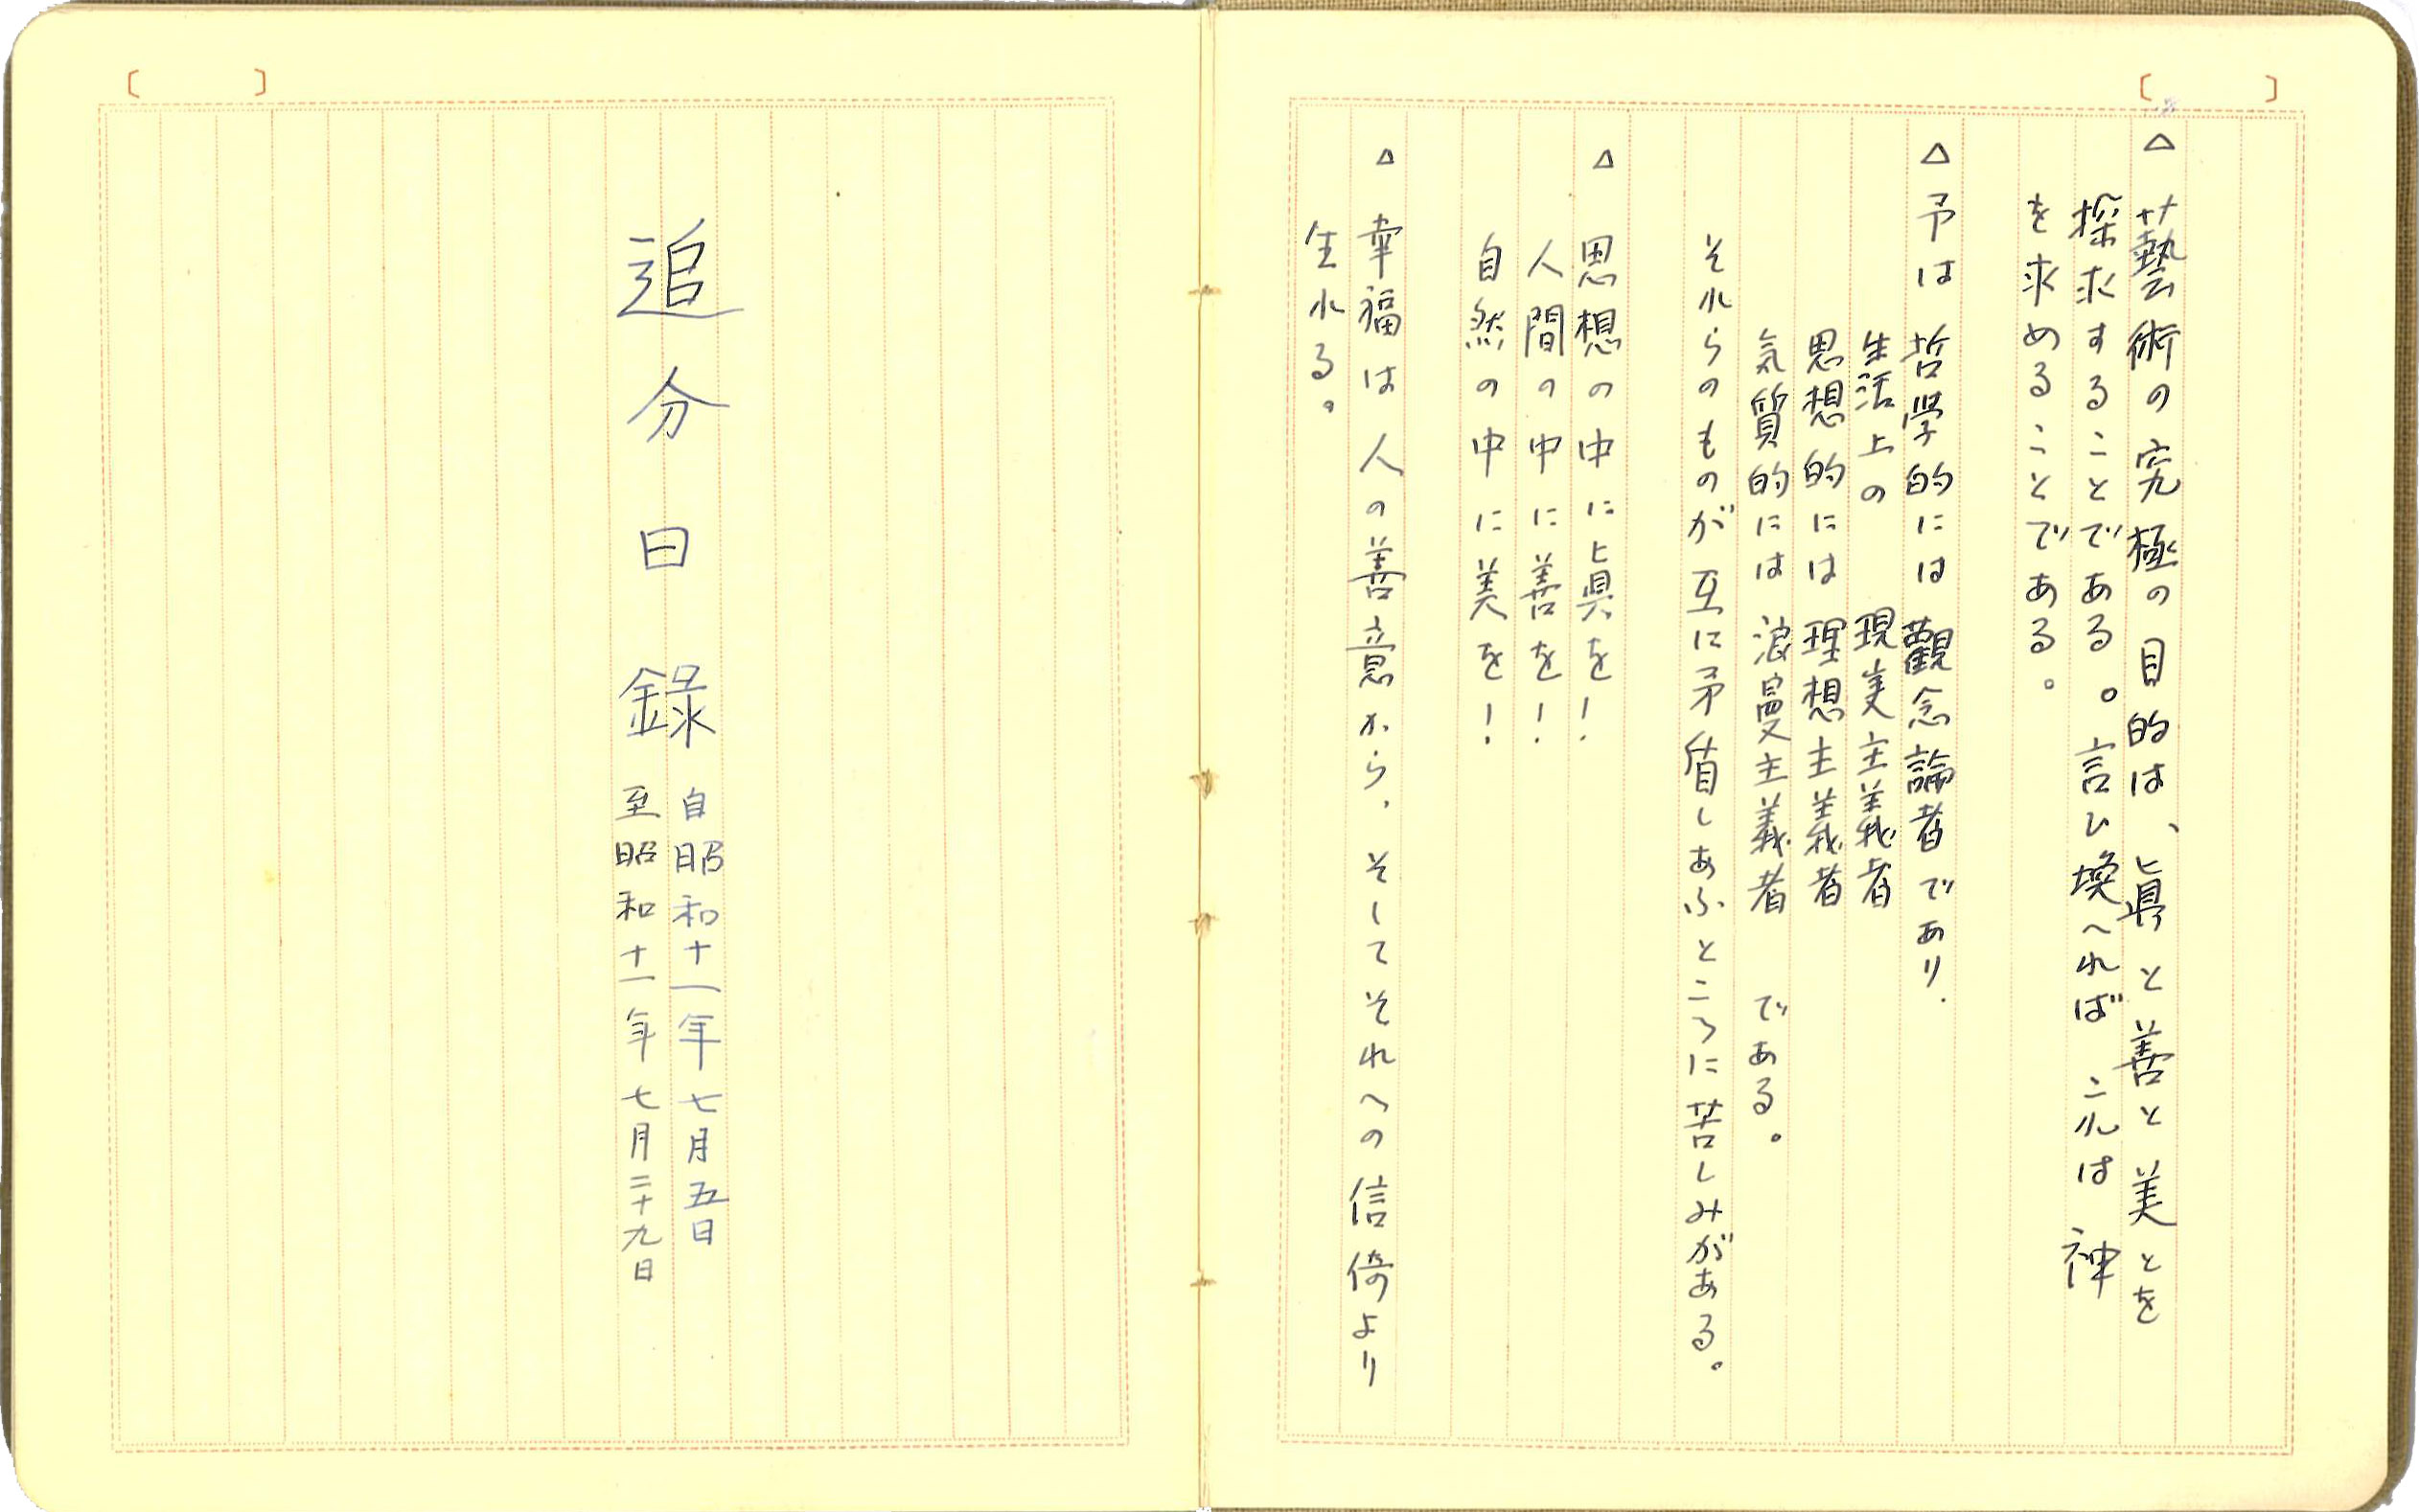 △ 藝術の究極の目的は、眞と善と美とを
探求することである。言ひ換へれば これは 神
を求めることである。
△ 予は 哲学的には 觀念論者であり.
生活上の 現実主義者
思想的には 理想主義者
気質的には 浪漫主義者 である。
それらのものが 互に矛盾しあふところに苦しみがある。
△ 思想の中に眞を!
人間の中に善を!
自然の中に美を!
△ 幸福は人の善意から、そしてそれへの信倚より
生れる。
追分日録
自昭和十一年七月五日
至昭和十一年七月二十九日